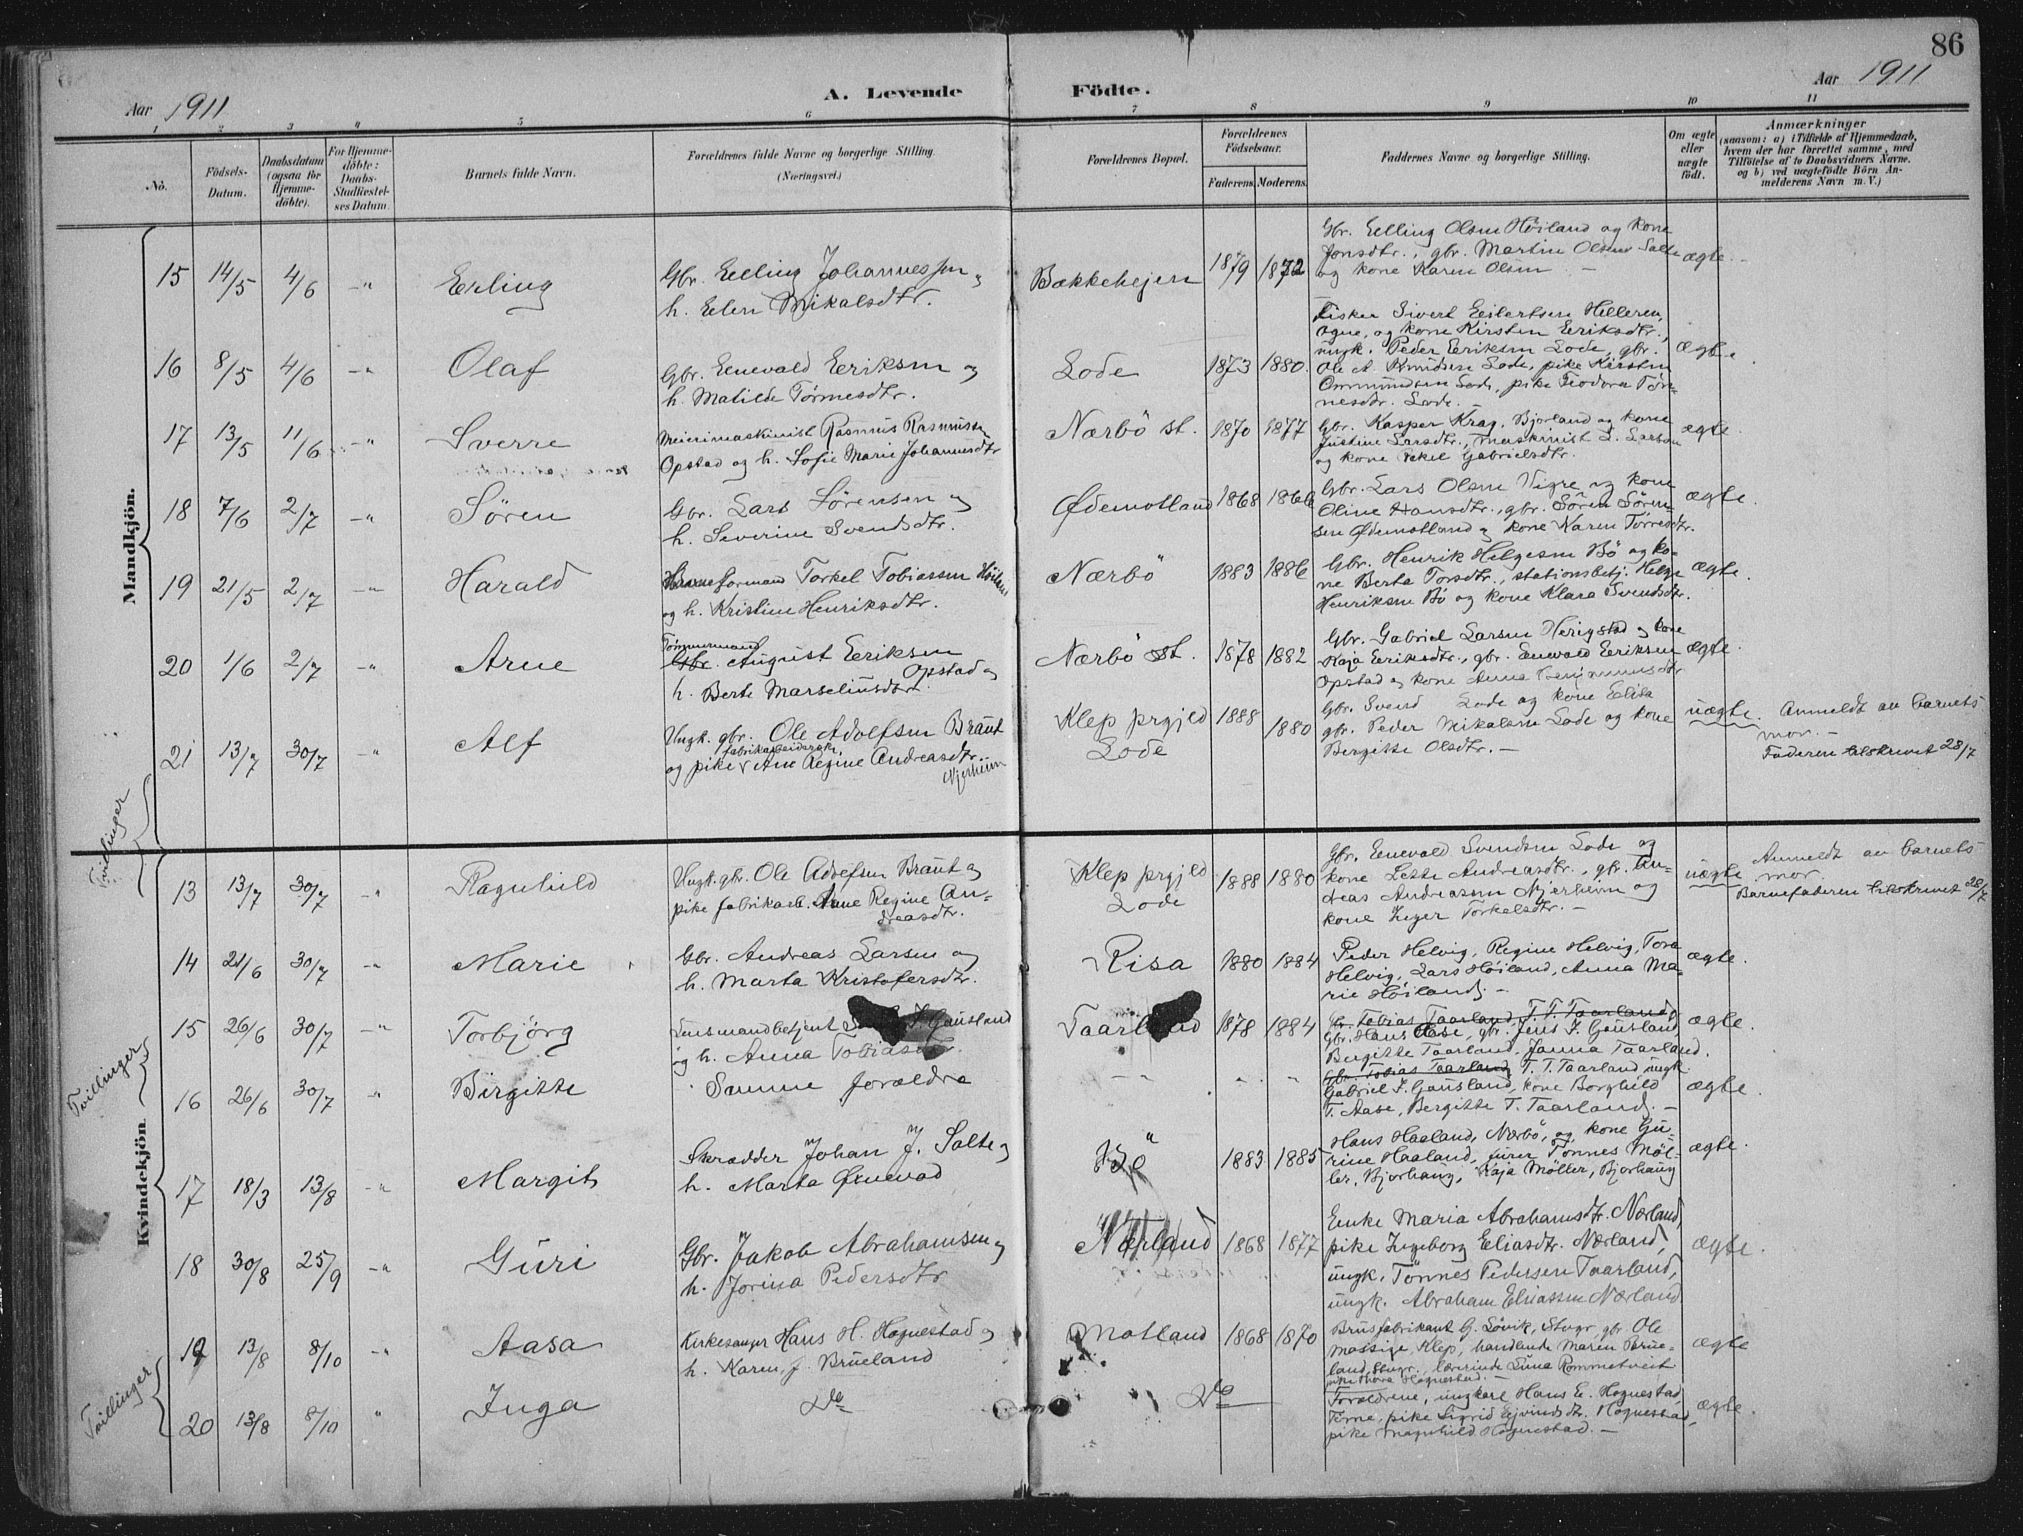 86
Aar 1911
A. Levende Födte.
Aar 1911
1 2 3 4 5 6 7 8 9 10 11
No.
Födsels-Datum.
Daabsdatum (ogsaa for Hjemme-döbte).
For Hjemme-döbte: Daabs-Stadfæstel-ses Datum.
Barnets fulde Navn.
Forældrenes fulde Navne og borgerlige Stilling.
(Næringsvei.)
Forældrenes Bopæl.
Forældrenes Födselsaar.
Faderens. Moderens.
Faddernes Navne og borgerlige Stilling.
Om ægte eller uægte födt.
Anmærkninger
(saasom: a) i Tilfælde af Hjemmedaab,
hvem der har forrettet samme, med
Tilföielse af to Daabsvidners Navne.
og b) ved uægtefödte Börn An-
melderens Navn m. V.)
Mandkjön.
15 14/5 4/6 -"- Erling
Gbr. Elling Johannessen og
h. Elen Mikalsdtr.
Bakkehejen 1879 1872
Gbr. Elling Olsen Höiland og kone
Jonsdtr., gbr. Martin Olsen Salte
og kone Karen Olsen —
ægte.
16 8/5 4/6 -"- Olaf
Gbr. Enevald Eriksen og
h. Matilde Tönnesdtr.
Lode 1873 1880
Fisker Sivert Eilertsen Helleren,
Ogne, og kone Kirsten Eriksdtr.,
ungk. Peder Eriksen Lode, gbr.
Ole A. Knudsen Lode, pike Kirstin
Ommundsen Lode, pike Teodora Tön-
nesdtr. Lode.
ægte.
17 13/5 11/6 -"- Sverre
Meierimaskinist Rasmus Rasmussen
Opstad og h. Sofie Marie Johannesdtr
Nærbö st. 1870 1877
Gbr. Kasper Krag, Bjorland og kone
Justine Larsdtr., maskinist L. Larsen
og kone Gabrielsdtr.
ægte.
18 7/6 2/7 -"- Sören
Gbr. Lars Sörensen og
h. Severine Svendsdtr.
Ødemotland 1868 1866
Gbr. Lars Olsen Vigre og kone
Oline Hansdtr., gbr. Sören Sören-
sen Ødemotland og kone Karen Torresdtr.
ægte.
19 21/5 2/7 -"- Harald
Baneformand Torkel Tobiassen Höiland
og h. Kristine Henriksdtr.
Nærbö 1883 1886
Gbr. Henrik Helgesen Bö og ko-
ne Berta Torsdtr., stationsbetj. Helge
Henriksen Bö og kone Klara Svendsdtr.
ægte.
20 1/6 2/7 -"- Arne
Tömmermand
Gbr. August Eriksen
Opstad og
h. Berte Marseliusdtr.
Nærbö st. 1878 1882
Gbr. Gabriel Larsen Herigstad og kone
Kaja Eriksdtr., gbr. Enevald Eriksen
Opstad og kone Anna
ægte.
21 13/7 30/7 -"- Alf
Ungk. gbr. Ole Adolfsen Braut
fabrikarbeiderske
og pike Ane Regine Andreasdtr.
Njerheim
Klep prgjeld
Lode
1888 1880
Gbr. Svend Lode og kone Elise
gbr. Peder Mikalsen Lode og kone
Bergitte Olsdtr. —
uægte.
Anmeldt av barnets
mor. —
Faderen tilskrevet 28/7
Tvillinger
13 13/7 30/7 " Ragnhild
Ungk. gbr. Ole Adolfsen Braut og
pike fabrikarb. Ane Regine An-
dreasdtr.
Klep prgjeld
Lode
1888 1880
Gbr. Enevald Svendsen Lode og
kone Lette Andreasdtr., gbr. An-
dreas Andreassen Njerheim og
kone Inger Torkelsdtr. —
uægte
Anmeldt av barnets
mor.
Barnefaderen tilskrevet 28/7
14 21/6 30/7 -"- Marie
Gbr. Andreas Larsen og
h. Marta Kristofersdtr.
Risa 1880 1884
Peder Helvig, Regine Helvig, Tora
Helvig, Lars Höiland, Anna Ma-
rie Höiland. —
ægte.
Kvindekjön.
Tvillinger
15 26/6 30/7 -"- Torbjörg
Lensmandbetjent J. Gausland
og h. Anna Tobiasdtr.
Taarland 1878 1884
Gbr. Tobias Taarland, T. T. Taarland,
Gbr. Hans Aase, gbr. Jens J. Gausland
Bergitte Taarland, Janna Taarland.
ægte.
16 26/6 30/7 " Birgitte
Samme forældre
— " — " "
Gbr. Tobias Taarland, T. T. Taarland ungk.
Gabriel J. Gausland, kone Borghild
T. Aase, Bergitte T. Taarland. —
ægte.
17 18/3 13/8 -"- Margit
Skrædder Johan J. Salte og
h. Marta Ørnevad
Bö 1883 1885
Hans Haaland, Nærbö, og kone Gu-
rine Haaland, Tönnes Möl-
ler, Bjorhaug, Kaja Möller, Bjorhaug
ægte.
18 30/8 25/9 -"- Guri
Gbr. Jakob Abrahamsen og
h. Jorina Pedersdtr
Nærland 1868 1877
Enke Maria Abrahamsdtr. Nærland,
pike Ingeborg Eliasdtr. Nærland,
ungk. Tönnes Pedersen Taarland,
ungk. Abraham Eliassen Nærland
ægte.
Tvillinger
19 13/8 8/10 -"- Aasa
Kirkesanger Hans H. Hognestad og
h. Karen J. Brueland
Motland 1868 1870
Brusfabrikant G. Lövik, Stvgr, gbr. Ole
Massige, Klep, handlende Maren Brue-
land, Stvgr., lærerinde Lina Rommetveit
pike Thora Hognestad. —
ægte
20 13/8 8/10 " Inga
Do
Do
Forældrene, ungkarl Hans E. Hognestad,
Time, pike Sigrid Ejvindsdtr. Hognestad,
pike Magnhild Hognestad. —
ægte.